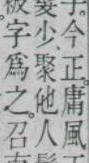 今正。庸風
少、聚他人
被字爲之。召